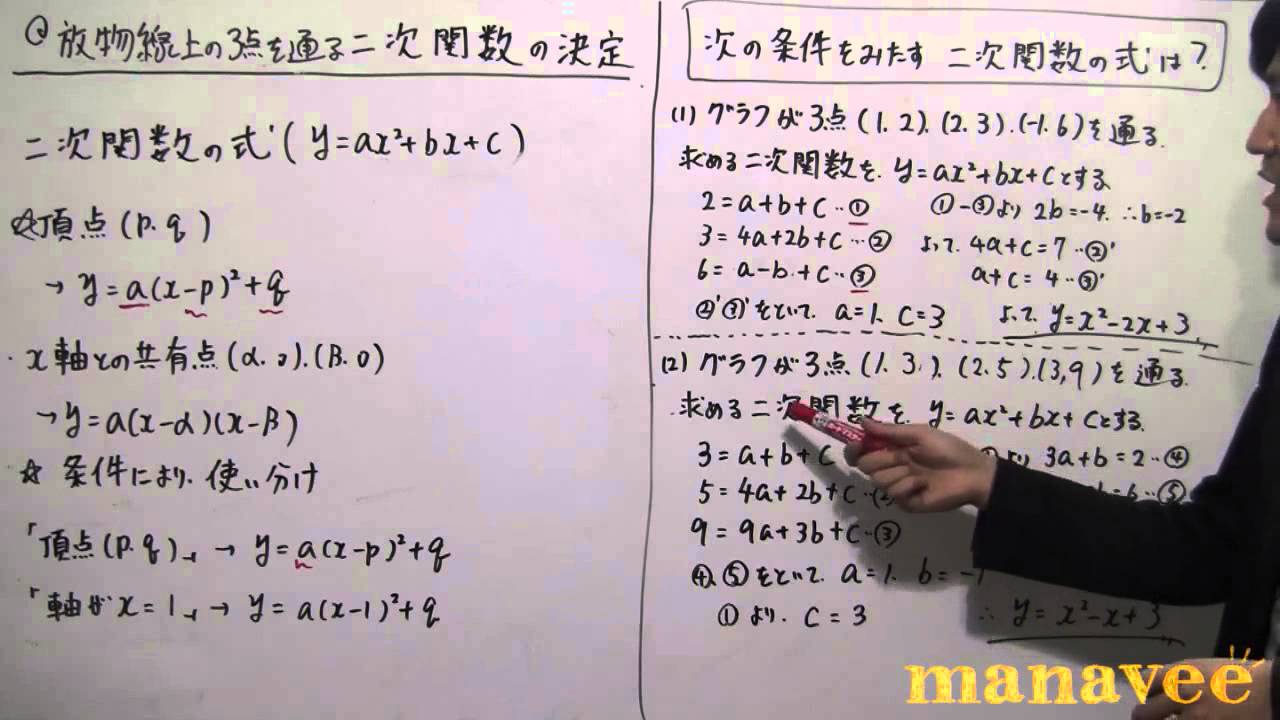 放物線上の3点を通る二次関数の決定
二次関数の式(y=ax²+bx+c)
☆頂点(p.q)
→ y=a(x-p)²+q
・x軸との共有点(α.0).(β.0)
→y=a(x-α)(x-β)
☆ 条件により、使い分け
「頂点(p.q)」→ y=a(x-p)²+q
「軸がx=1」→ y=a(x-1)²+q
次の条件をみたす 二次関数の式は?
(1) グラフが3点(1.2).(2.3).(-1.6)を通る.
求める二次関数を. y=ax²+bx+cとする
2=a+b+c…① ①-③より 2b=-4. ∴b=-2
3=4a+2b+c…② よって. 4a+c=7…②'
6=a-b+c…③ a+c=4…③'
②'③'をといて. a=1. C=3 よって. y=x²-2x+3
(2) グラフが3点(1.3.).(2.5).(3,9)を通る.
求める二次関数を. y=ax²+bx+cとする.
3=a+b+c より 3a+b=2…④
5=4a+2b+c…② =6…⑤
9=9a+3b+c…③
④、⑤をといて. a=1. b=-1
①より. C=3 ∴ y=x²-x+3
manavee